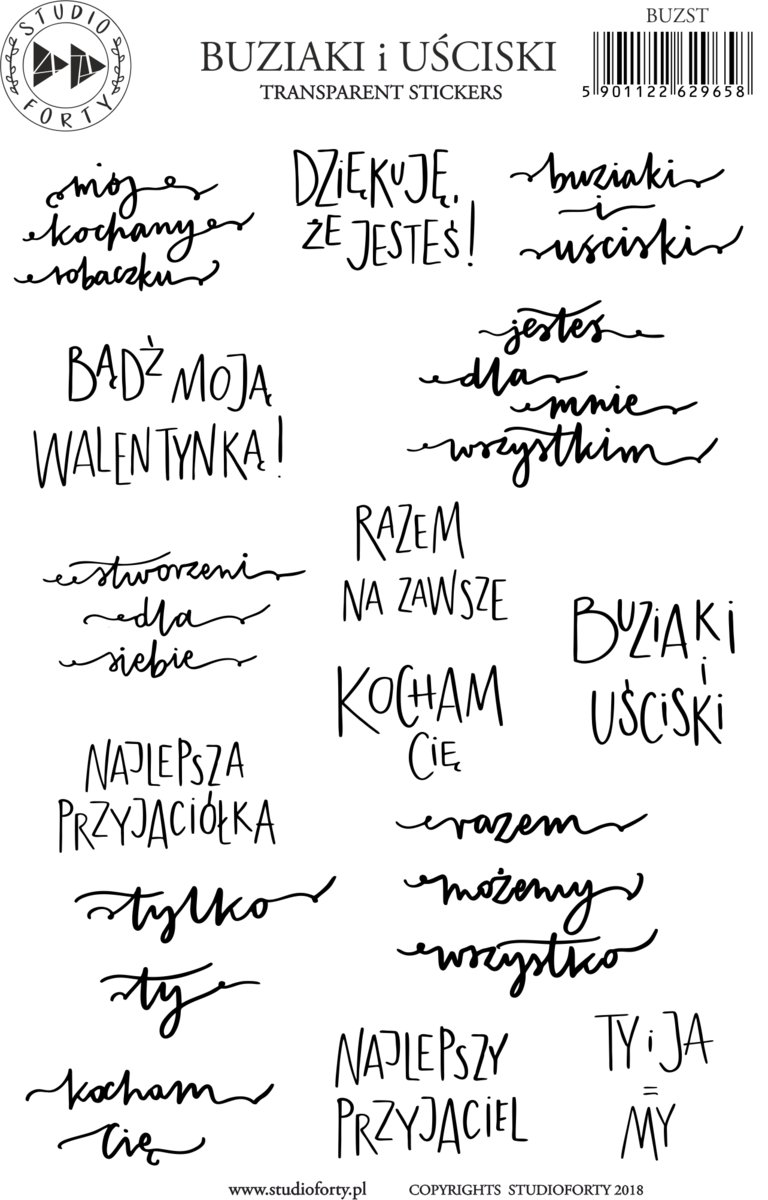 STUDIO
FORTY
BUZIAKI i UŚCISKI
TRANSPARENT STICKERS
BUZST
5 901122 629658
mój
kochany
robaczku
DZIĘKUJĘ,
ŻE JESTEŚ!
buziaki
i
uściski
jesteś
dla
mnie
wszystkim
BĄDŹ MOJĄ
WALENTYNKĄ!
RAZEM
NA ZAWSZE
stworzeni
dla
siebie
BUZIAKI
i
UŚCISKI
KOCHAM
CIĘ
NAJLEPSZA
PRZYJACIÓŁKA
razem
możemy
wszystko
tylko
ty
kocham
Cię
NAJLEPSZY
PRZYJACIEL
TY i JA
=
MY
www.studioforty.pl
COPYRIGHTS STUDIOFORTY 2018